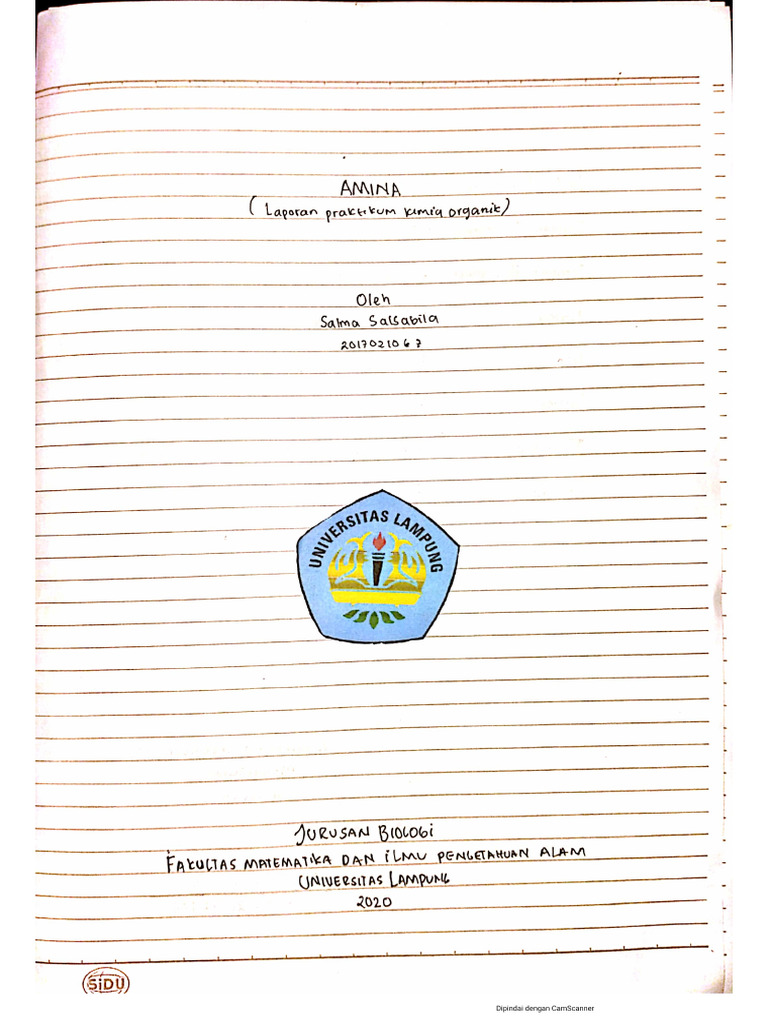 AMINA
( Laporan praktikum kimia organik)
Oleh
Salma Salsabila
2017021067
UNIVERSITAS LAMPUNG
JURUSAN BIOLOGI
FAKULTAS MATEMATIKA DAN ILMU PENGETAHUAN ALAM
UNIVERSITAS LAMPUNG
2020
SiDU
Dipindai dengan CamScanner